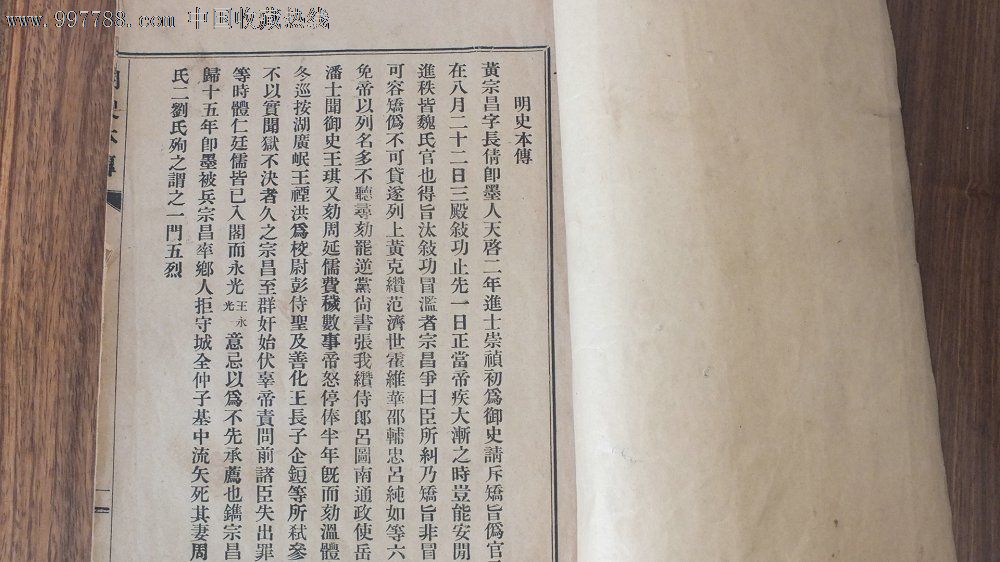 www.997788.com 中国收藏热线
明史本傳
黃宗昌字長倩卽墨人天啓二年進士崇禎初爲御史請斥矯旨僞官
在八月二十二日三殿敍功止先一日正當帝疾大漸之時豈能安閒
進秩皆魏氏官也得旨汰敍功冒濫者宗昌爭曰臣所糾乃矯旨非冒
可容矯僞不可貸遂列上黃克纘范濟世霍維華邵輔忠呂純如等六
免帝以列名多不聽尋劾罷逆黨尙書張我纘侍郞呂圖南通政使岳
潘士聞御史王琪又劾周延儒貪穢數事帝怒停俸半年旣而劾溫體
冬巡按湖廣岷王禋洪爲校尉彭侍聖及善化王長子企鋀等所弒參
不以實聞獄不決者久之宗昌至群奸始伏辜帝責問前諸臣失出罪
等時體仁廷儒皆已入閣而永光王永光一意忌以爲不先承薦也鐫宗昌
歸十五年卽墨被兵宗昌率鄕人拒守城全仲子基中流矢死其妻周
氏二劉氏殉之謂之一門五烈
一